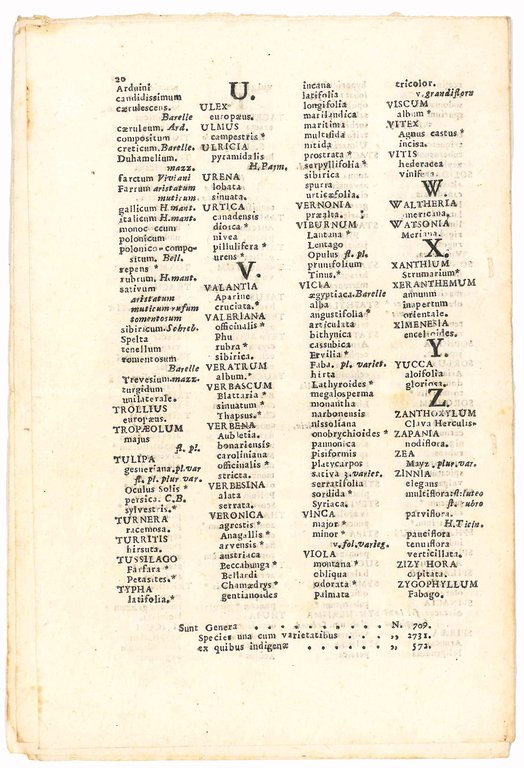 20
Arduini
candidissimum
cærulescens.
Barelle
cæruleum. Ard.
compositum
creticum. Barelle.
Duhamelium.
mazz.
farctum Viviani
Farrum aristatum
muticum
gallicum H. mant.
italicum H. mant.
monococcum
polonicum
polonico-compo-
situm. Bell.
repens *
rubrum. H. mant.
sativum
aristatum
muticum rufum
tomentosum
sibiricum. Schreb.
Spelta
tenellum
tomentosum
Barelle
Trevesium mazz.
turgidum
unilaterale.
TROLLIUS
europæus.
TROPÆOLUM
majus
fl. pl.
TULIPA
gesneriana. pl. var
fl. pl. plur var.
Oculus Solis *
persica. C. B.
sylvestris. *
TURNERA
racemosa.
TURRITIS
hirsuta.
TUSSILAGO
Farfara *
Petasites. *
TYPHA
latifolia. *
U.
ULEX
europæus.
ULMUS
campestris *
ULRICIA
pyramidalis
H. Parm.
URENA
lobata
sinuata.
URTICA
canadensis
dioica *
nivea
pillulifera *
urens *
V.
VALANTIA
Aparine
cruciata. *
VALERIANA
officinalis *
Phu
rubra *
sibirica.
VERATRUM
album. *
VERBASCUM
Blattaria *
sinuatum *
Thapsus. *
VERBENA
Aubletia.
bonariensis
caroliniana
officinalis *
stricta.
VERBESINA
alata
serrata.
VERONICA
agrestis *
Anagallis *
arvensis *
austriaca
Beccabunga *
Bellardi
Chamædrys *
gentianoides
incana
latifolia
longifolia
marilandica
maritima
multifida
nitida
prostrata *
serpyllifolia *
sibirica
spuria
urticæfolia.
VERNONIA
præalta.
VIBURNUM
Lantana *
Lentago
Opulus fl. pl.
prunifolium
Tinus. *
VICIA
ægyptiaca. Barelle
alba
angustifolia *
articulata
bithynica
cassubica
Ervilia *
Faba. pl. variet.
hirta
Lathyroides *
megalosperma
monantha
narbonensis
nissoliana
onobrychioides *
pannonica
pisiformis
platycarpos
sativa 3. variet.
serratifolia
sordida *
Syriaca.
VINCA
major *
minor *
v. fol. varieg.
VIOLA
montana *
obliqua
odorata *
palmata
tricolor.
v. grandiflora
VISCUM
album *
VITEX
Agnus castus *
incisa.
VITIS
hederacea
vinifera.
W.
WALTHERIA
americana.
WATSONIA
Meriana.
X.
XANTHIUM
Strumarium *
XERANTHEMUM
annuum
inapertum
orientale.
XIMENESIA
encelioides.
Y.
YUCCA
aloifolia
gloriosa.
Z
ZANTHOXYLUM
Clava Herculis.
ZAPANIA
nodiflora.
ZEA
Mayz. plur. var.
ZINNIA
elegans
multiflora: fl: luteo
fl. rubro
parviflora.
H. Ticin.
pauciflora
tenuiflora
verticillata.
ZIZYPHORA
capitata.
ZYGOPHYLLUM
Fabago.
Sunt Genera . . . . . . . . . N. 709.
Species una cum varietatibus . . . ,, 2731.
ex quibus indigenæ . . . . . . ,, 572.